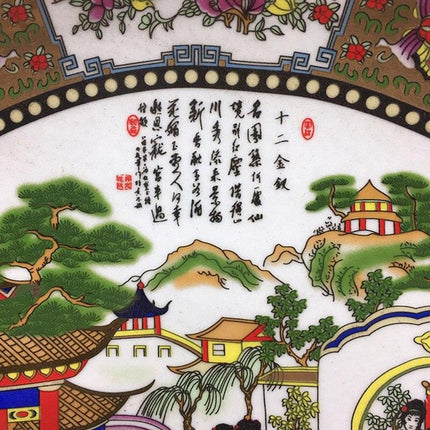 十二金釵
名園築何處仙
境別紅塵借得山
川秀添来景物
新香融金谷酒
花媚玉堂人何幸
邀恩寵宮車過
往頻